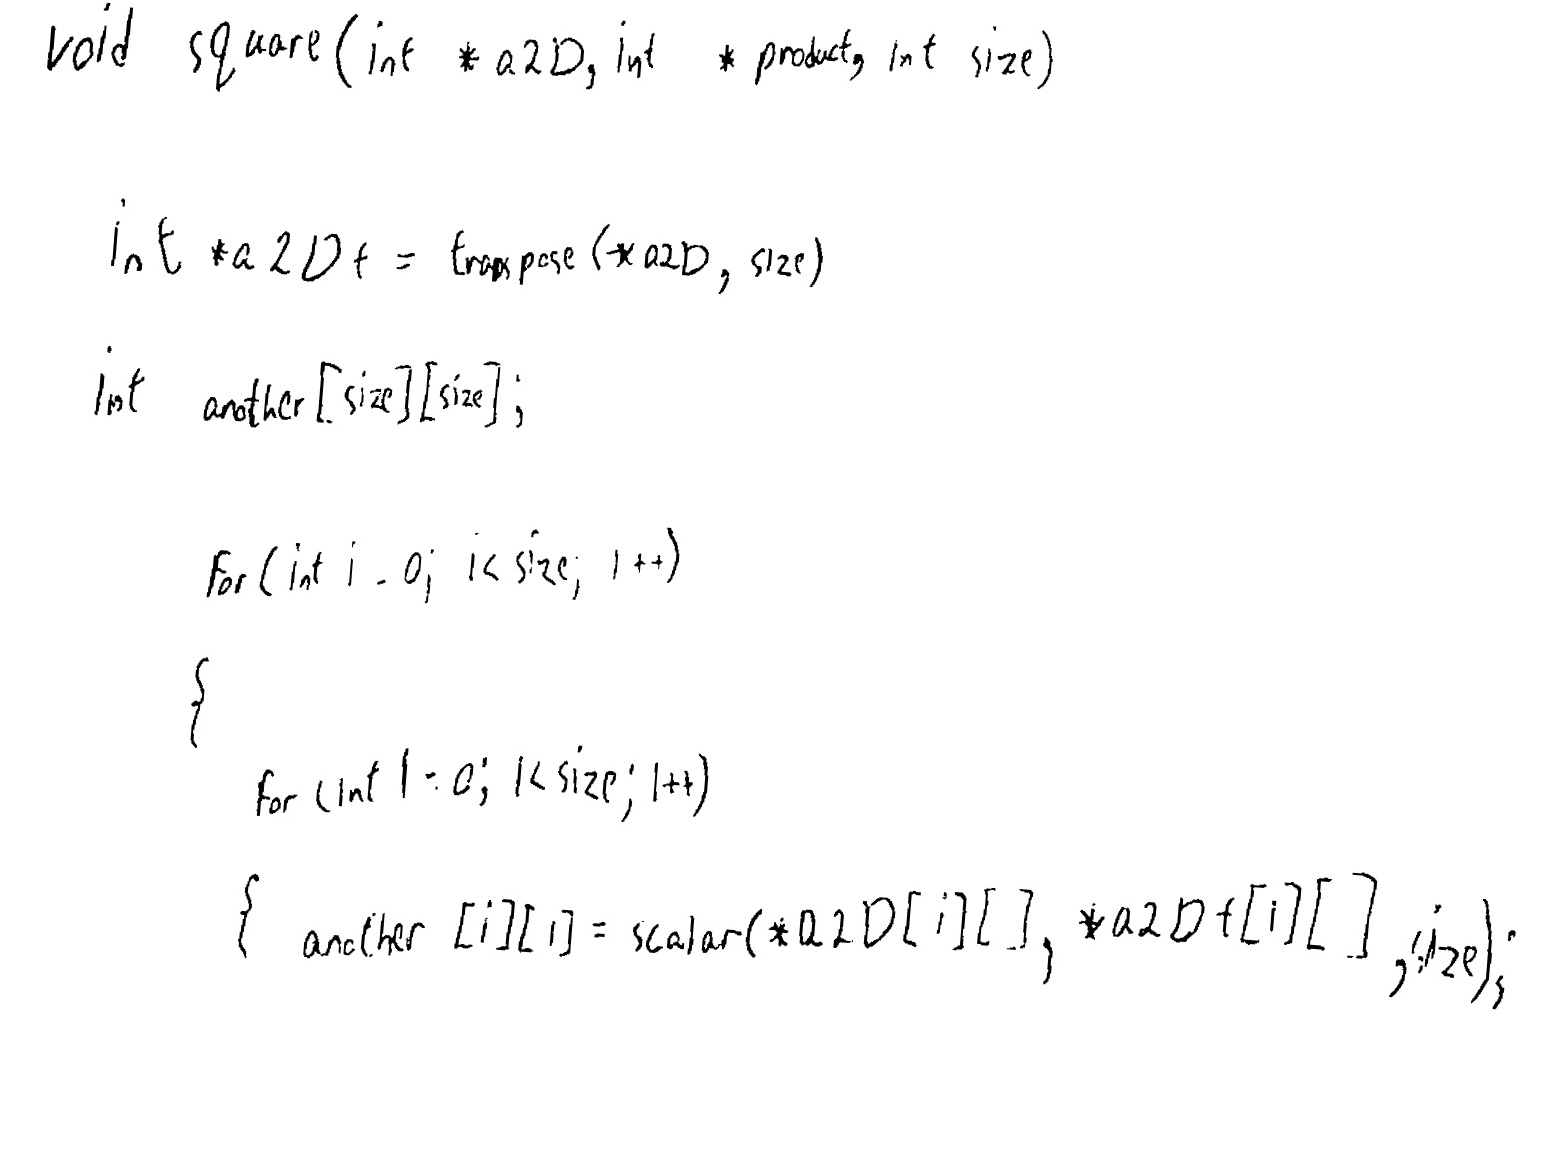 void square(int *a2D, int * product, int size)
int *a2Dt = transpose(*a2D, size)
int another[size][size];
for(int i = 0; i< size; i++)
{
for (int i = 0; i< size; i++)
{ another [i][i] = scalar(*a2D[i][], *a2Dt[i][], size);